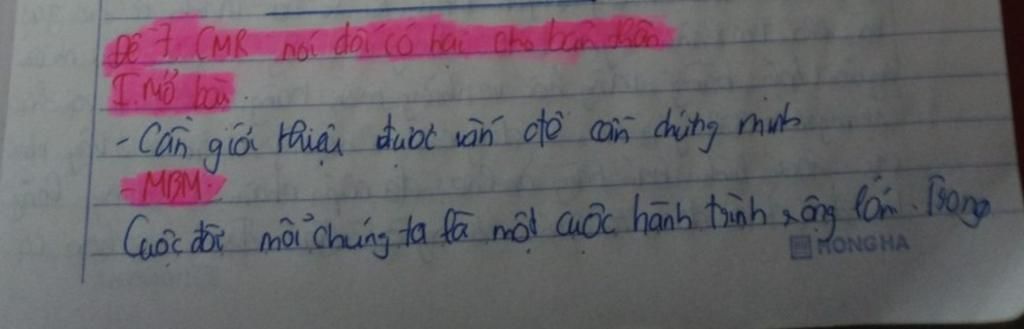 Đề 7. CMR nói dối có hại cho bản thân
I. Mở bài.
- Cần giới thiệu được vấn đề cần chứng minh
- MBM:
Cuộc đời mỗi chúng ta là một cuộc hành trình rộng lớn. Trong
HONGHA